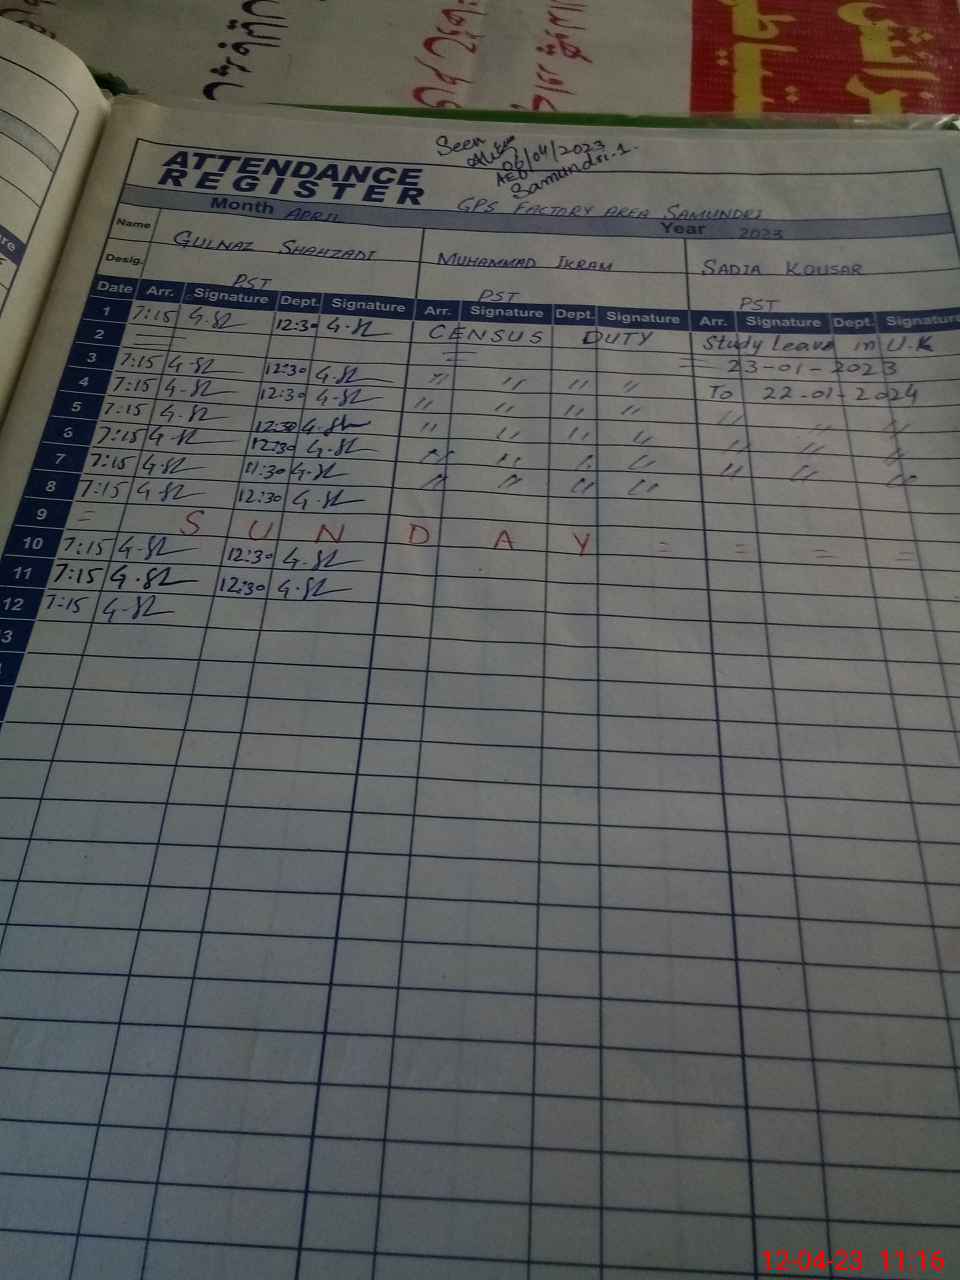 Seen
06/04/2023
AEO
Samundri-1.
ATTENDANCE
REGISTER
GPS FACTORY AREA SAMUNDRI
Month APRIL Year 2023
Name GULNAZ SHAHZADI MUHAMMAD IKRAM SADIA KOUSAR
Desig. PST PST PST
Date Arr. Signature Dept. Signature Arr. Signature Dept. Signature Arr. Signature Dept. Signature
1 7:15 G.S 12:30 G.S CENSUS DUTY Study leave in U.K
2 = = 23-01-2023
3 7:15 G.S 12:30 G.S " " " " To 22-01-2024
4 7:15 G.S 12:30 G.S " " " " " " "
5 7:15 G.S 12:30 G.S " " " " " " "
6 7:15 G.S 12:30 G.S " " " " " " "
7 7:15 G.S 11:30 G.S " " " "
8 7:15 G.S 12:30 G.S
9 = S U N D A Y = = = =
10 7:15 G.S 12:30 G.S
11 7:15 G.S 12:30 G.S
12 7:15 G.S
3
12-04-23 11:16